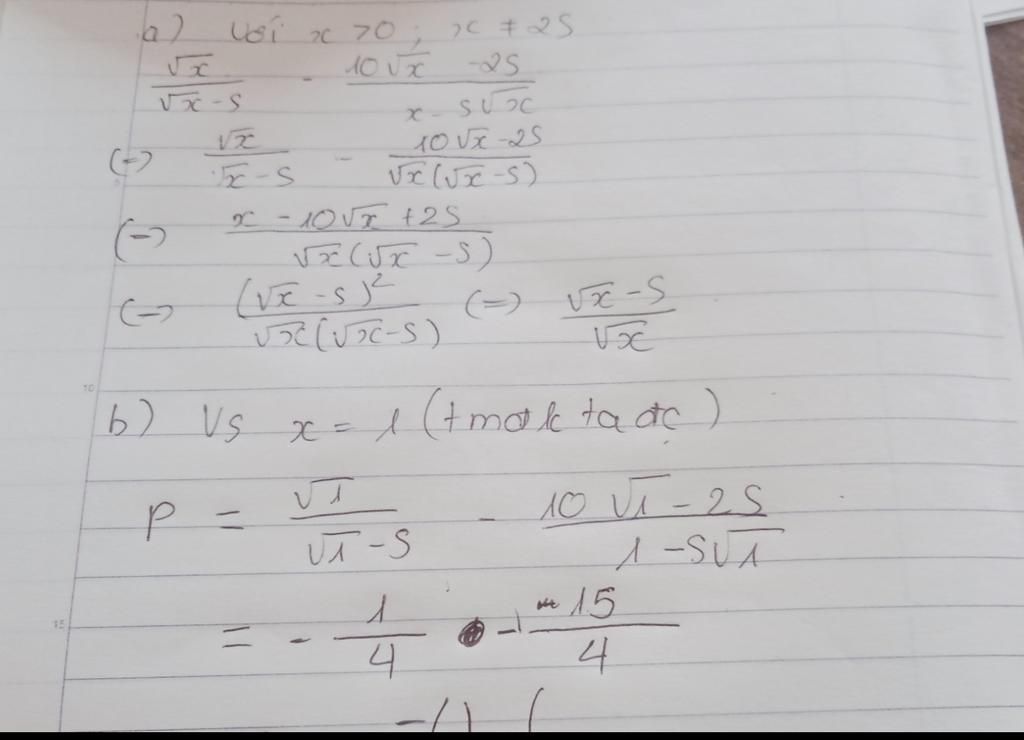 a) Với x > 0 ; x ≠ 25
√x/(√x - 5) - (10√x - 25)/(x - 5√x)
(=) √x/(√x - 5) - (10√x - 25)/(√x(√x - 5))
(=) (x - 10√x + 25)/(√x(√x - 5))
(=) (√x - 5)²/(√x(√x - 5)) (=) (√x - 5)/√x
10
b) Vs x = 1 (tmđk ta đc)
P = √1/(√1 - 5) - (10√1 - 25)/(1 - 5√1)
15
= - 1/4 - 15/4